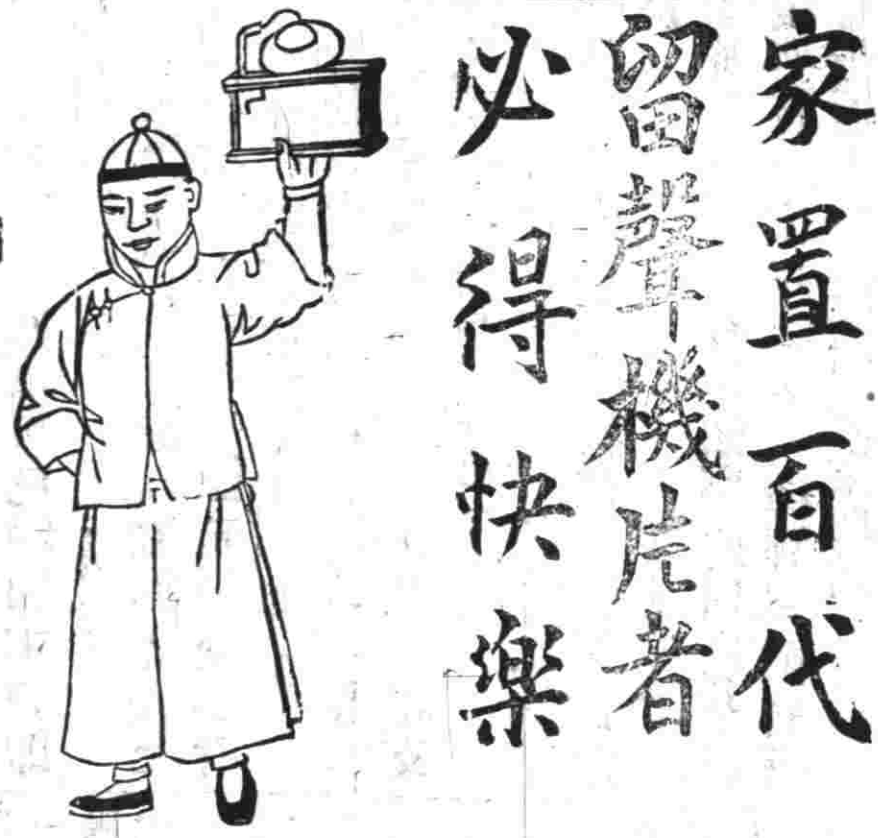 家置百代
留聲機片者
必得快樂